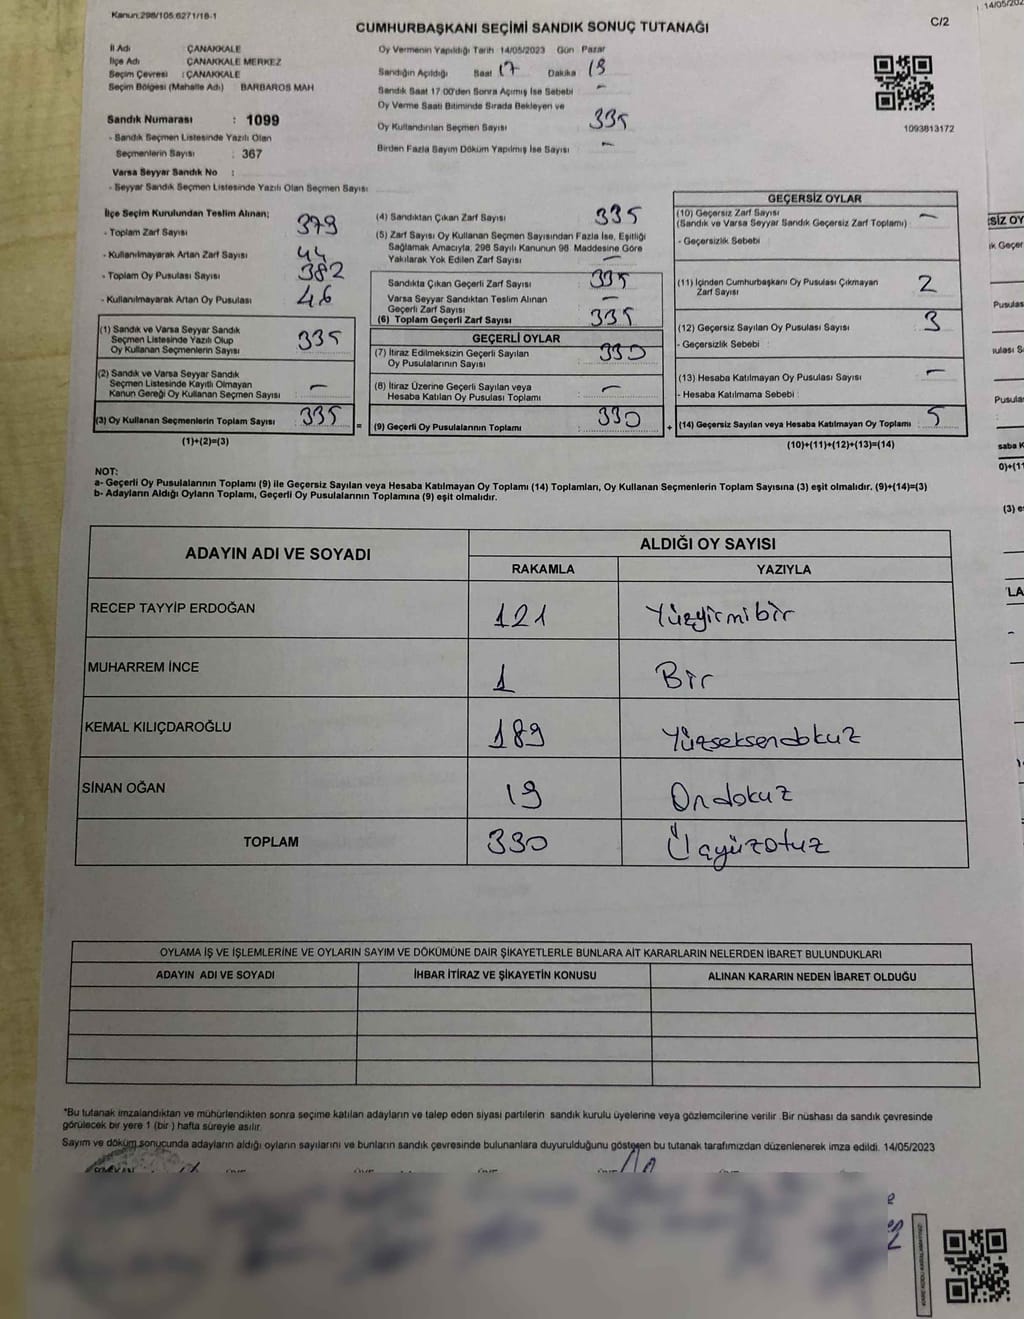 Kanun:298/105.6271/18-1
14/05/202
CUMHURBAŞKANI SEÇİMİ SANDIK SONUÇ TUTANAĞI
C/2
İl Adı : ÇANAKKALE
İlçe Adı : ÇANAKKALE MERKEZ
Seçim Çevresi : ÇANAKKALE
Seçim Bölgesi (Mahalle Adı) BARBAROS MAH
Oy Vermenin Yapıldığı Tarih 14/05/2023 Gün Pazar
Sandığın Açıldığı Saat 17 Dakika 19
Sandık Saat 17:00'den Sonra Açımış İse Sebebi –
Oy Verme Saati Bitiminde Sırada Bekleyen ve
Oy Kullandırılan Seçmen Sayısı 335
Birden Fazla Sayım Döküm Yapılmış İse Sayısı –
1093813172
Sandık Numarası : 1099
- Sandık Seçmen Listesinde Yazılı Olan
Seçmenlerin Sayısı : 367
Varsa Seyyar Sandık No :
- Seyyar Sandık Seçmen Listesinde Yazılı Olan Seçmen Sayısı:
İlçe Seçim Kurulundan Teslim Alınan;
- Toplam Zarf Sayısı 379
- Kullanılmayarak Artan Zarf Sayısı 44
- Toplam Oy Pusulası Sayısı 382
- Kullanılmayarak Artan Oy Pusulası 46
(1) Sandık ve Varsa Seyyar Sandık
Seçmen Listesinde Yazılı Olup
Oy Kullanan Seçmenlerin Sayısı 335
(2) Sandık ve Varsa Seyyar Sandık
Seçmen Listesinde Kayıtlı Olmayan
Kanun Gereği Oy Kullanan Seçmen Sayısı –
(3) Oy Kullanan Seçmenlerin Toplam Sayısı 335
(1)+(2)=(3)
(4) Sandıktan Çıkan Zarf Sayısı 335
(5) Zarf Sayısı Oy Kullanan Seçmen Sayısından Fazla İse, Eşitliği
Sağlamak Amacıyla, 298 Sayılı Kanunun 98. Maddesine Göre
Yakılarak Yok Edilen Zarf Sayısı –
Sandıkta Çıkan Geçerli Zarf Sayısı 335
Varsa Seyyar Sandıktan Teslim Alınan
Geçerli Zarf Sayısı –
(6) Toplam Geçerli Zarf Sayısı 335
GEÇERLİ OYLAR
(7) İtiraz Edilmeksizin Geçerli Sayılan
Oy Pusulalarının Sayısı 330
(8) İtiraz Üzerine Geçerli Sayılan veya
Hesaba Katılan Oy Pusulası Toplamı –
(9) Geçerli Oy Pusulalarının Toplamı 330
=
+
GEÇERSİZ OYLAR
(10) Geçersiz Zarf Sayısı
(Sandık ve Varsa Seyyar Sandık Geçersiz Zarf Toplamı) –
- Geçersizlik Sebebi :
(11) İçinden Cumhurbaşkanı Oy Pusulası Çıkmayan
Zarf Sayısı 2
(12) Geçersiz Sayılan Oy Pusulası Sayısı 3
- Geçersizlik Sebebi :
(13) Hesaba Katılmayan Oy Pusulası Sayısı –
- Hesaba Katılmama Sebebi :
(14) Geçersiz Sayılan veya Hesaba Katılmayan Oy Toplamı 5
(10)+(11)+(12)+(13)=(14)
NOT:
a- Geçerli Oy Pusulalarının Toplamı (9) ile Geçersiz Sayılan veya Hesaba Katılmayan Oy Toplamı (14) Toplamları, Oy Kullanan Seçmenlerin Toplam Sayısına (3) eşit olmalıdır. (9)+(14)=(3)
b- Adayların Aldığı Oyların Toplamı, Geçerli Oy Pusulalarının Toplamına (9) eşit olmalıdır.
ADAYIN ADI VE SOYADI
ALDIĞI OY SAYISI
RAKAMLA YAZIYLA
RECEP TAYYİP ERDOĞAN 121 Yüzyirmibir
MUHARREM İNCE 1 Bir
KEMAL KILIÇDAROĞLU 189 Yüzseksendokuz
SİNAN OĞAN 19 Ondokuz
TOPLAM 330 Üçyüzotuz
OYLAMA İŞ VE İŞLEMLERİNE VE OYLARIN SAYIM VE DÖKÜMÜNE DAİR ŞİKAYETLERLE BUNLARA AİT KARARLARIN NELERDEN İBARET BULUNDUKLARI
ADAYIN ADI VE SOYADI İHBAR İTİRAZ VE ŞİKAYETİN KONUSU ALINAN KARARIN NEDEN İBARET OLDUĞU
*Bu tutanak imzalandıktan ve mühürlendikten sonra seçime katılan adayların ve talep eden siyasi partilerin sandık kurulu üyelerine veya gözlemcilerine verilir. Bir nüshası da sandık çevresinde
görülecek bir yere 1 (bir ) hafta süreyle asılır.
Sayım ve döküm sonucunda adayların aldığı oyların sayılarını ve bunların sandık çevresinde bulunanlara duyurulduğunu gösteren bu tutanak tarafımızdan düzenlenerek imza edildi. 14/05/2023